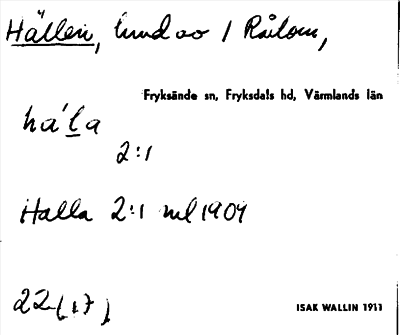 Hällen, lund av / Rålom,
Fryksände sn, Fryksdals hd, Värmlands län
ha´la
2:1
Halla 2:1 ml 1909
22 (17)
ISAK WALLIN 1911